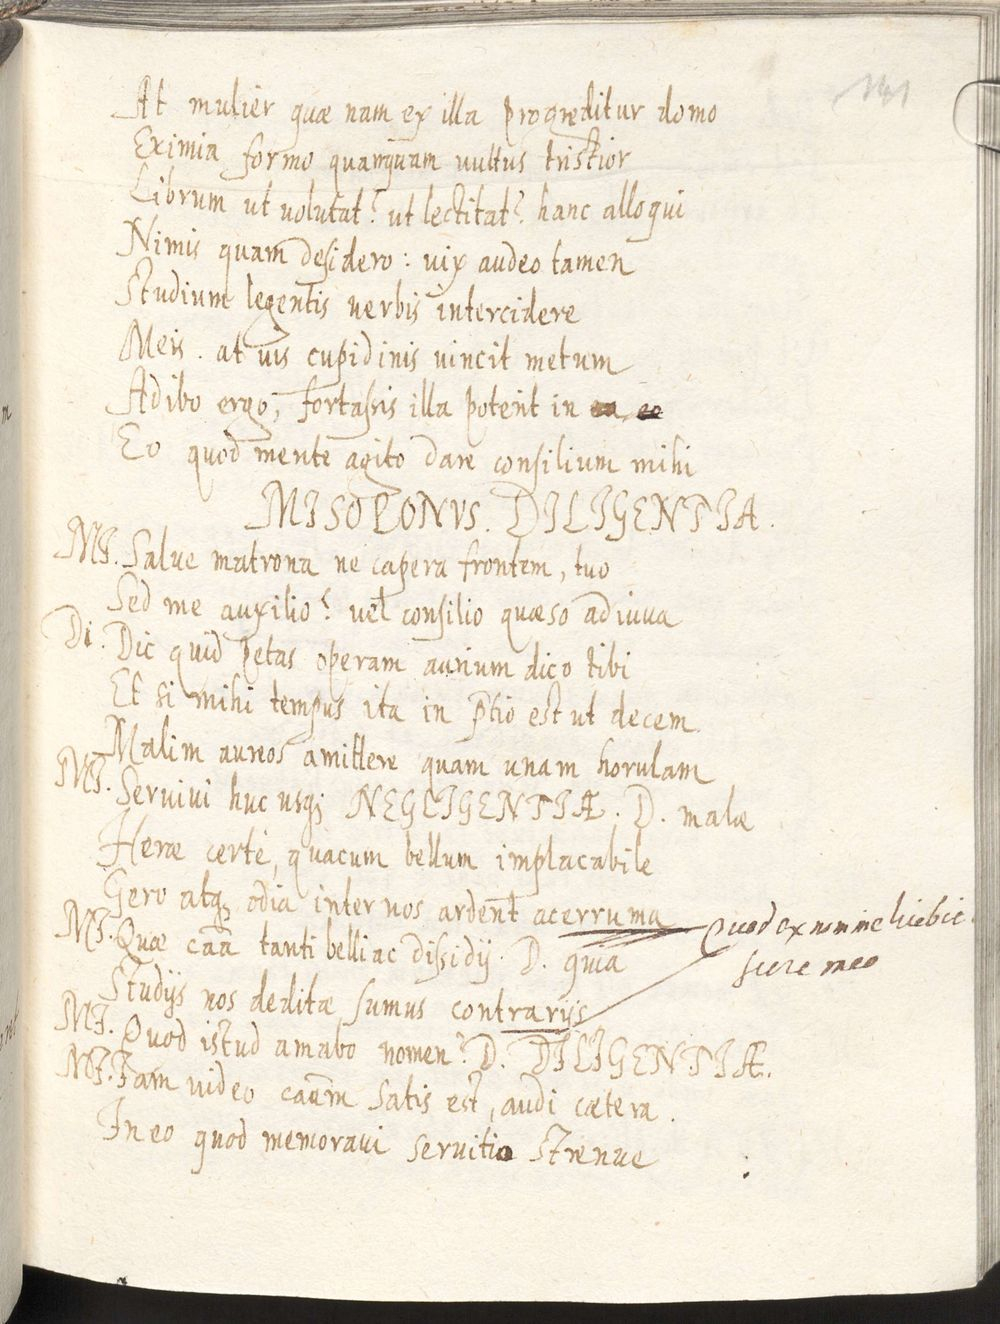 141
At mulier quæ nam ex illa progreditur domo
Eximia formo quamquam uultus tristior
Librum ut uolutat? ut lectitat? hanc alloqui
Nimis quam desidero: uix audeo tamen
Studium legentis uerbis intercidere
Meis. at uis cupidinis uincit metum
Adibo ergo, fortassis illa poterit in
Eo quod mente agito dare consilium mihi
MISOPONVS. DILIGENTIA.
MI. Salue matrona ne capera frontem, tuo
Sed me auxilio? uel consilio quæso adiuua
Di. Dic quid petas operam aurium dico tibi
Et si mihi tempus ita in ptio est ut decem
Malim aureos amittere quam unam horulam
MI. Seruiui huc usq; NEGLIGENTIÆ. D. malæ
Heræ certè, quacum bellum implacabile
Gero atq; odia inter nos ardent acerruma
MI. Quæ caã tanti belli ac dissidij. D. quia
Quod ex nomine
scire meo
Studijs nos deditæ sumus contrarijs
MI. Quod istud amabo nomen? D. DILIGENTIÆ.
MI. Iam uideo caũm satis est, audi cætera.
In eo quod memoraui seruitio strenue